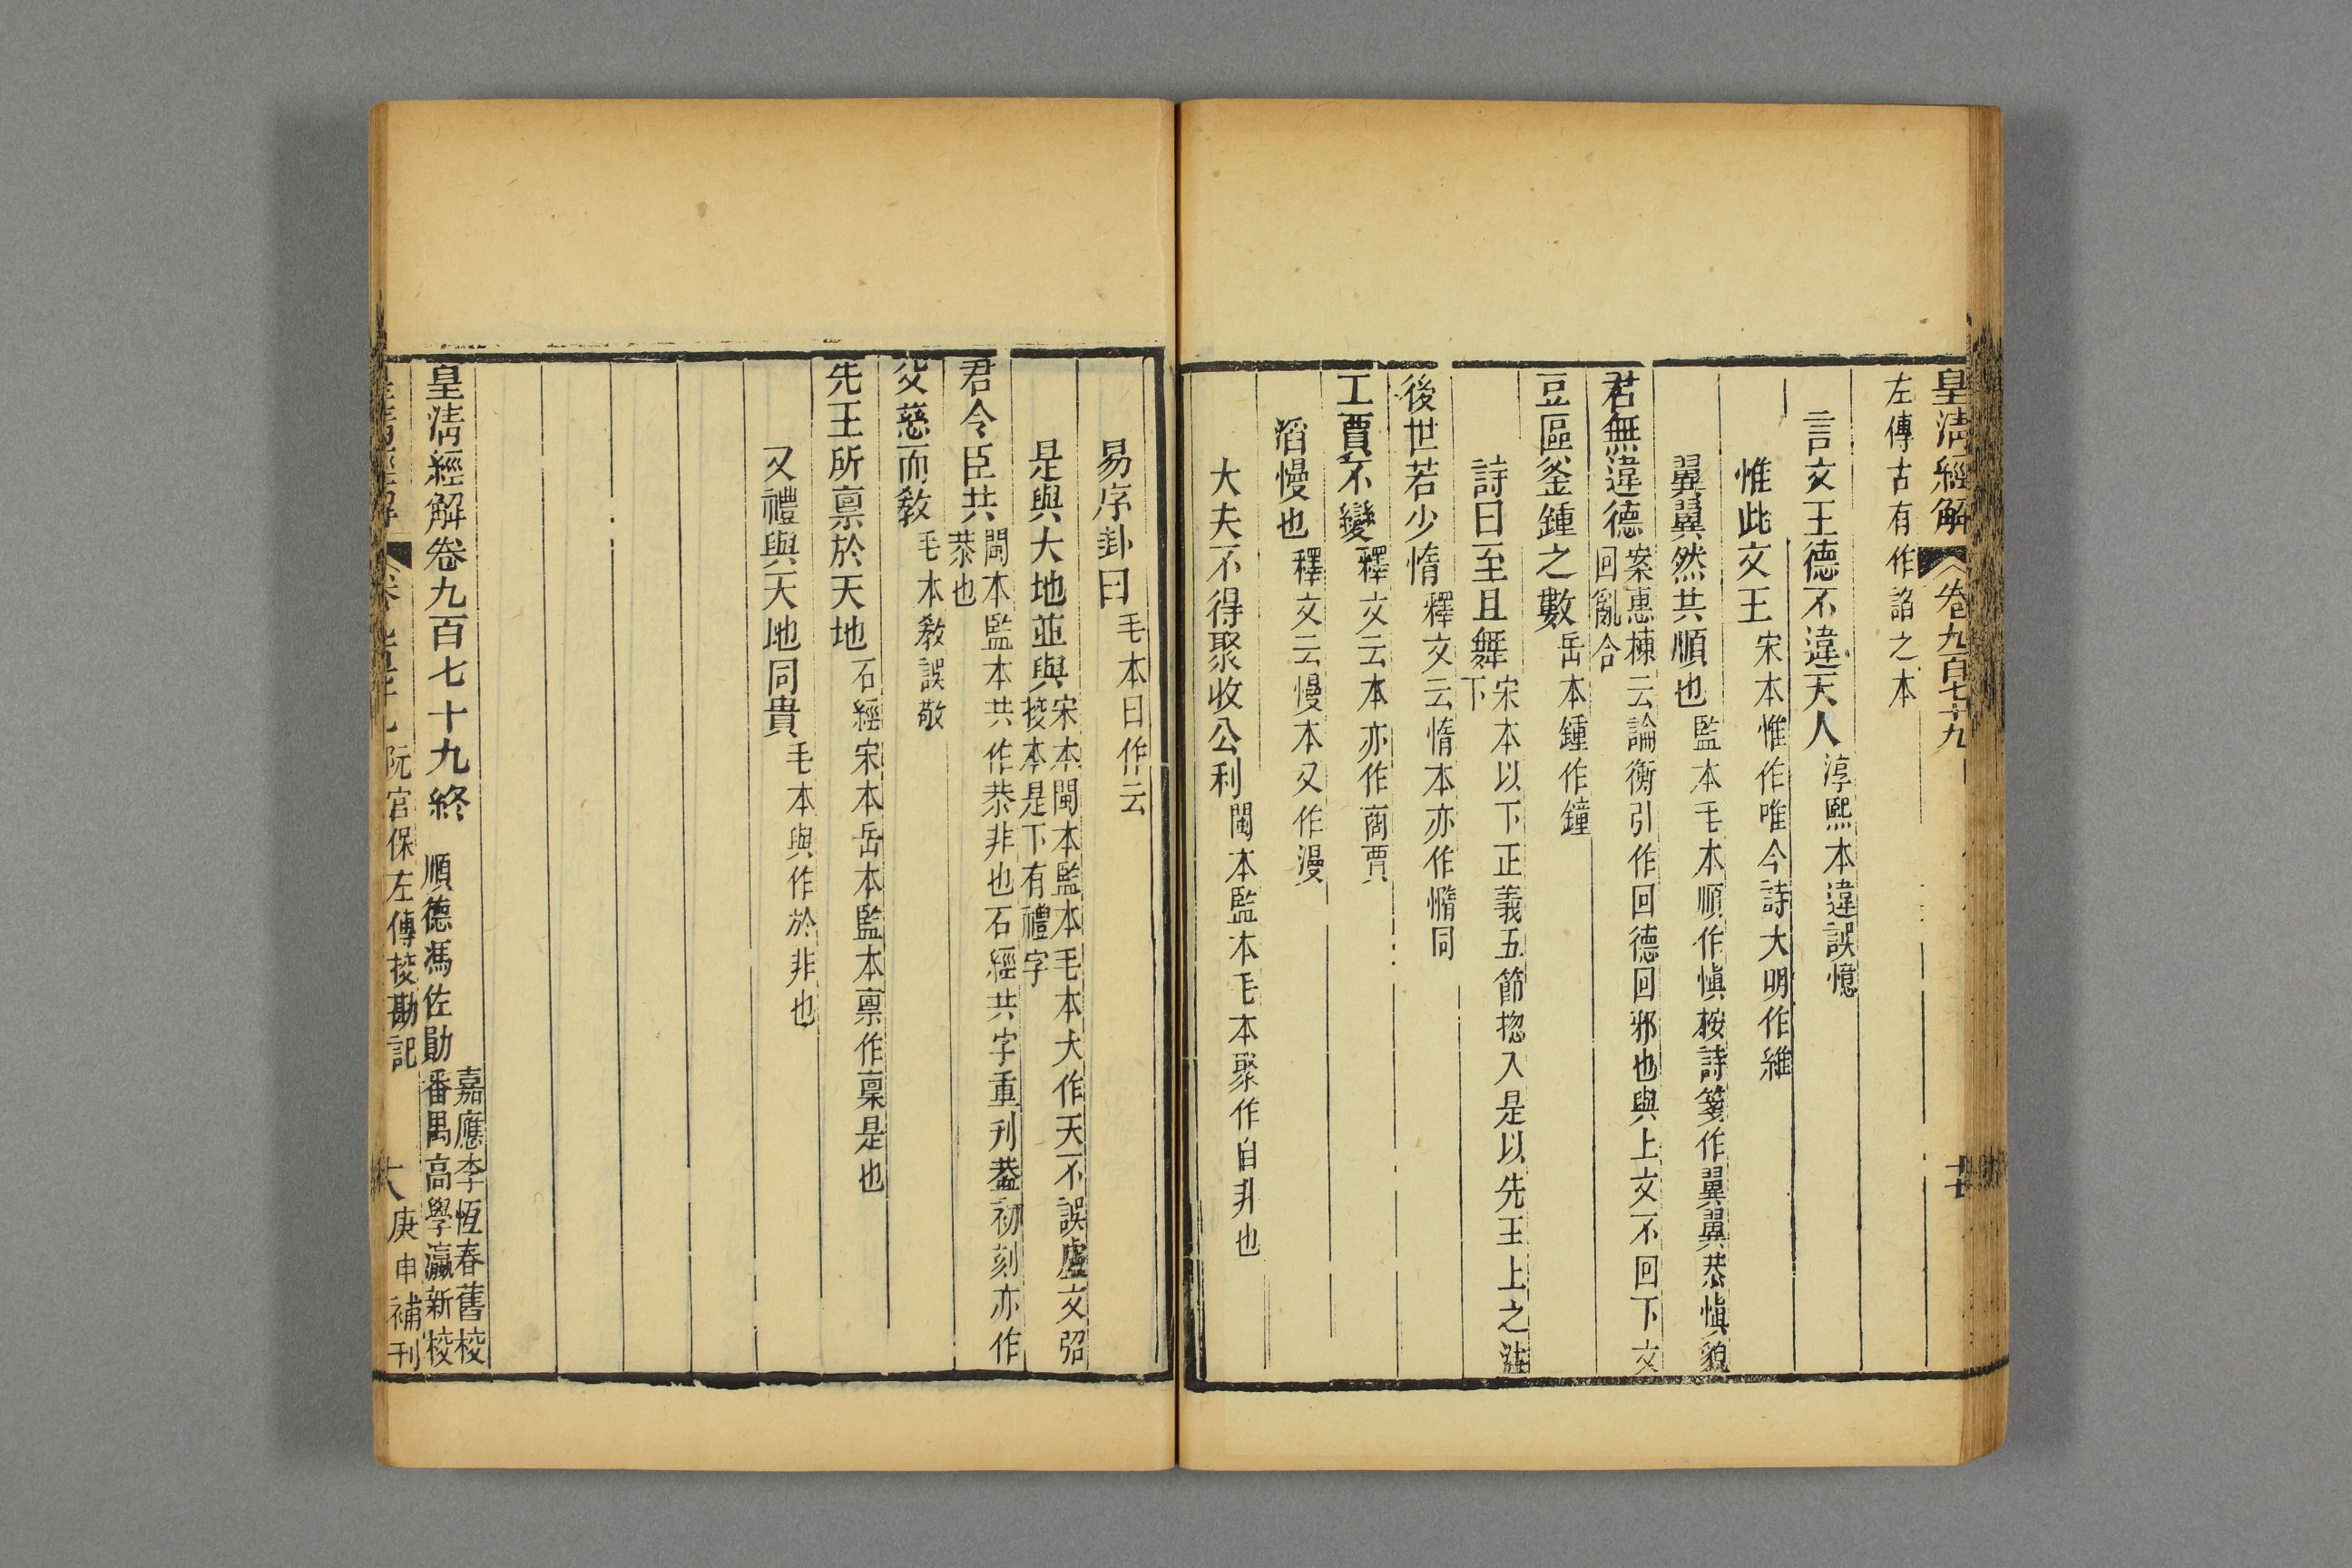 皇淸經解
卷九百七十九
左傳古有作諂之本
言文王德不違天人 淳熙本違誤憶
惟此文王 宋本惟作唯今詩大明作維
翼翼然共順也 監本毛本順作愼桉詩箋作翼翼恭愼貌
君無違德 案惠棟云論衡引作回德回邪也與上文不回下文
回亂合
豆區釜鍾之數 岳本鍾作鐘
詩曰至且舞 宋本以下正義五節揔入是以先王上之注
下
後世若少惰 釋文云惰本亦作憜同
工賈不變 釋文云本亦作商賈
滔慢也 釋文云慢本又作漫
大夫不得聚收公利 閩本監本毛本聚作自非也
易序卦曰 毛本曰作云
是與大地並與 宋本閩本監本毛本大作天不誤盧文弨
挍本是下有禮字
君令臣共 閩本監本共作恭非也石經共字重刊蓋初刻亦作
恭也
父慈而敎 毛本敎誤敬
先王所禀於天地 石經宋本岳本監本禀作稟是也
又禮與天地同貴 毛本與作於非也
皇淸經解卷九百七十九終
嘉應李恆春舊校
順德馮佐勛
番禺高學瀛新校
皇淸經解
阮宮保左傳挍勘記
庚申補刊